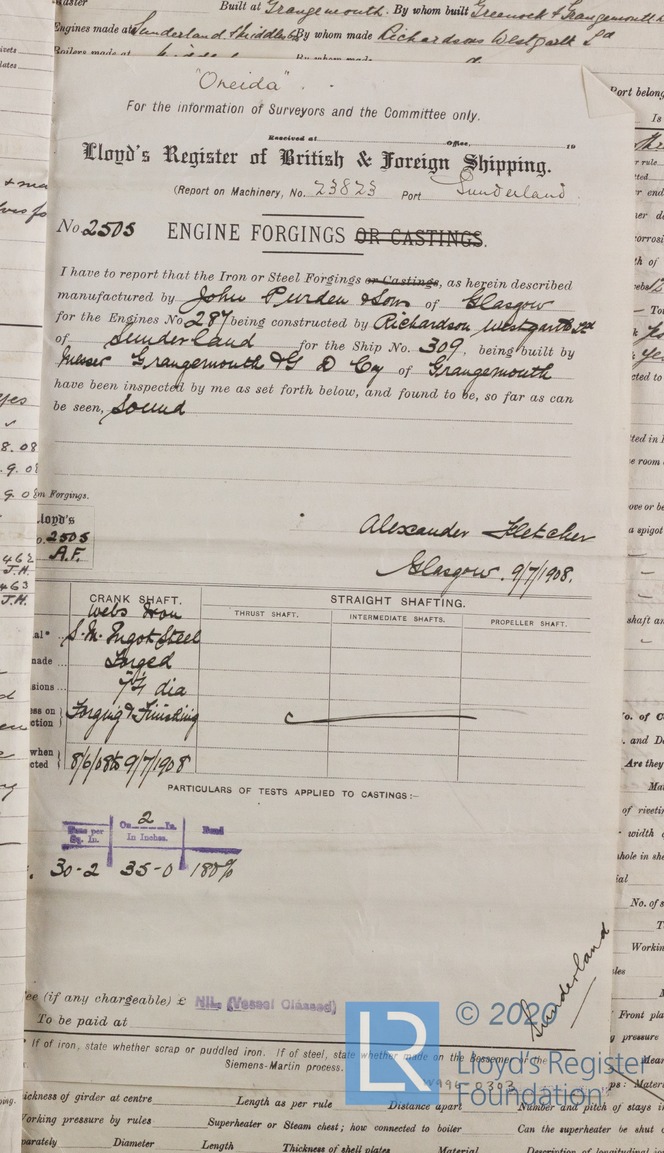 Built at Grangemouth. By whom built Greenock & Grangemouth
Engines made at Sunderland & Middles By whom made Richardsons Westgarth Ld
Boilers made at By whom made
"Oneida".
For the information of Surveyors and the Committee only.
Received at Office, 19
Lloyd's Register of British & Foreign Shipping.
(Report on Machinery, No. 23823 Port Sunderland.
No 2505 ENGINE FORGINGS OR CASTINGS.
I have to report that the Iron or Steel Forgings or Castings, as herein described
manufactured by John Purden & Sons of Glasgow
for the Engines No 287 being constructed by Richardson Westgarth Ld
of Sunderland for the Ship No. 309, being built by
Messer Grangemouth & G D Coy of Grangemouth
have been inspected by me as set forth below, and found to be, so far as can
be seen, Sound
on Forgings.
Lloyd's
o. 2505
A.F.
Alexander Fletcher
Glasgow. 9/7/1908.
CRANK SHAFT. STRAIGHT SHAFTING.
THRUST SHAFT. INTERMEDIATE SHAFTS. PROPELLER SHAFT.
Webs Iron
al* S.M. Ingot Steel
made Forged
sions dia
ss on Forging & Finishing
ction
when
cted 8/6/08 to 9/7/1908
PARTICULARS OF TESTS APPLIED TO CASTINGS:—
Tons per Sq. In. On 2 In. In Inches. Bend
30-2 35-0 180%
ee (if any chargeable) £ NIL (Vessel Classed)
To be paid at
Sunderland
* If of iron, state whether scrap or puddled iron. If of steel, state whether made on the Bessemer or the
Siemens-Martin process.
W996-0303
LR
© 2020
Lloyd's Register
Foundation
ickness of girder at centre Length as per rule Distance apart Number and pitch of stays in
Working pressure by rules Superheater or Steam chest; how connected to boiler Can the superheater be shut
parately Diameter Length Thickness of shell plates Material Description of longitudinal